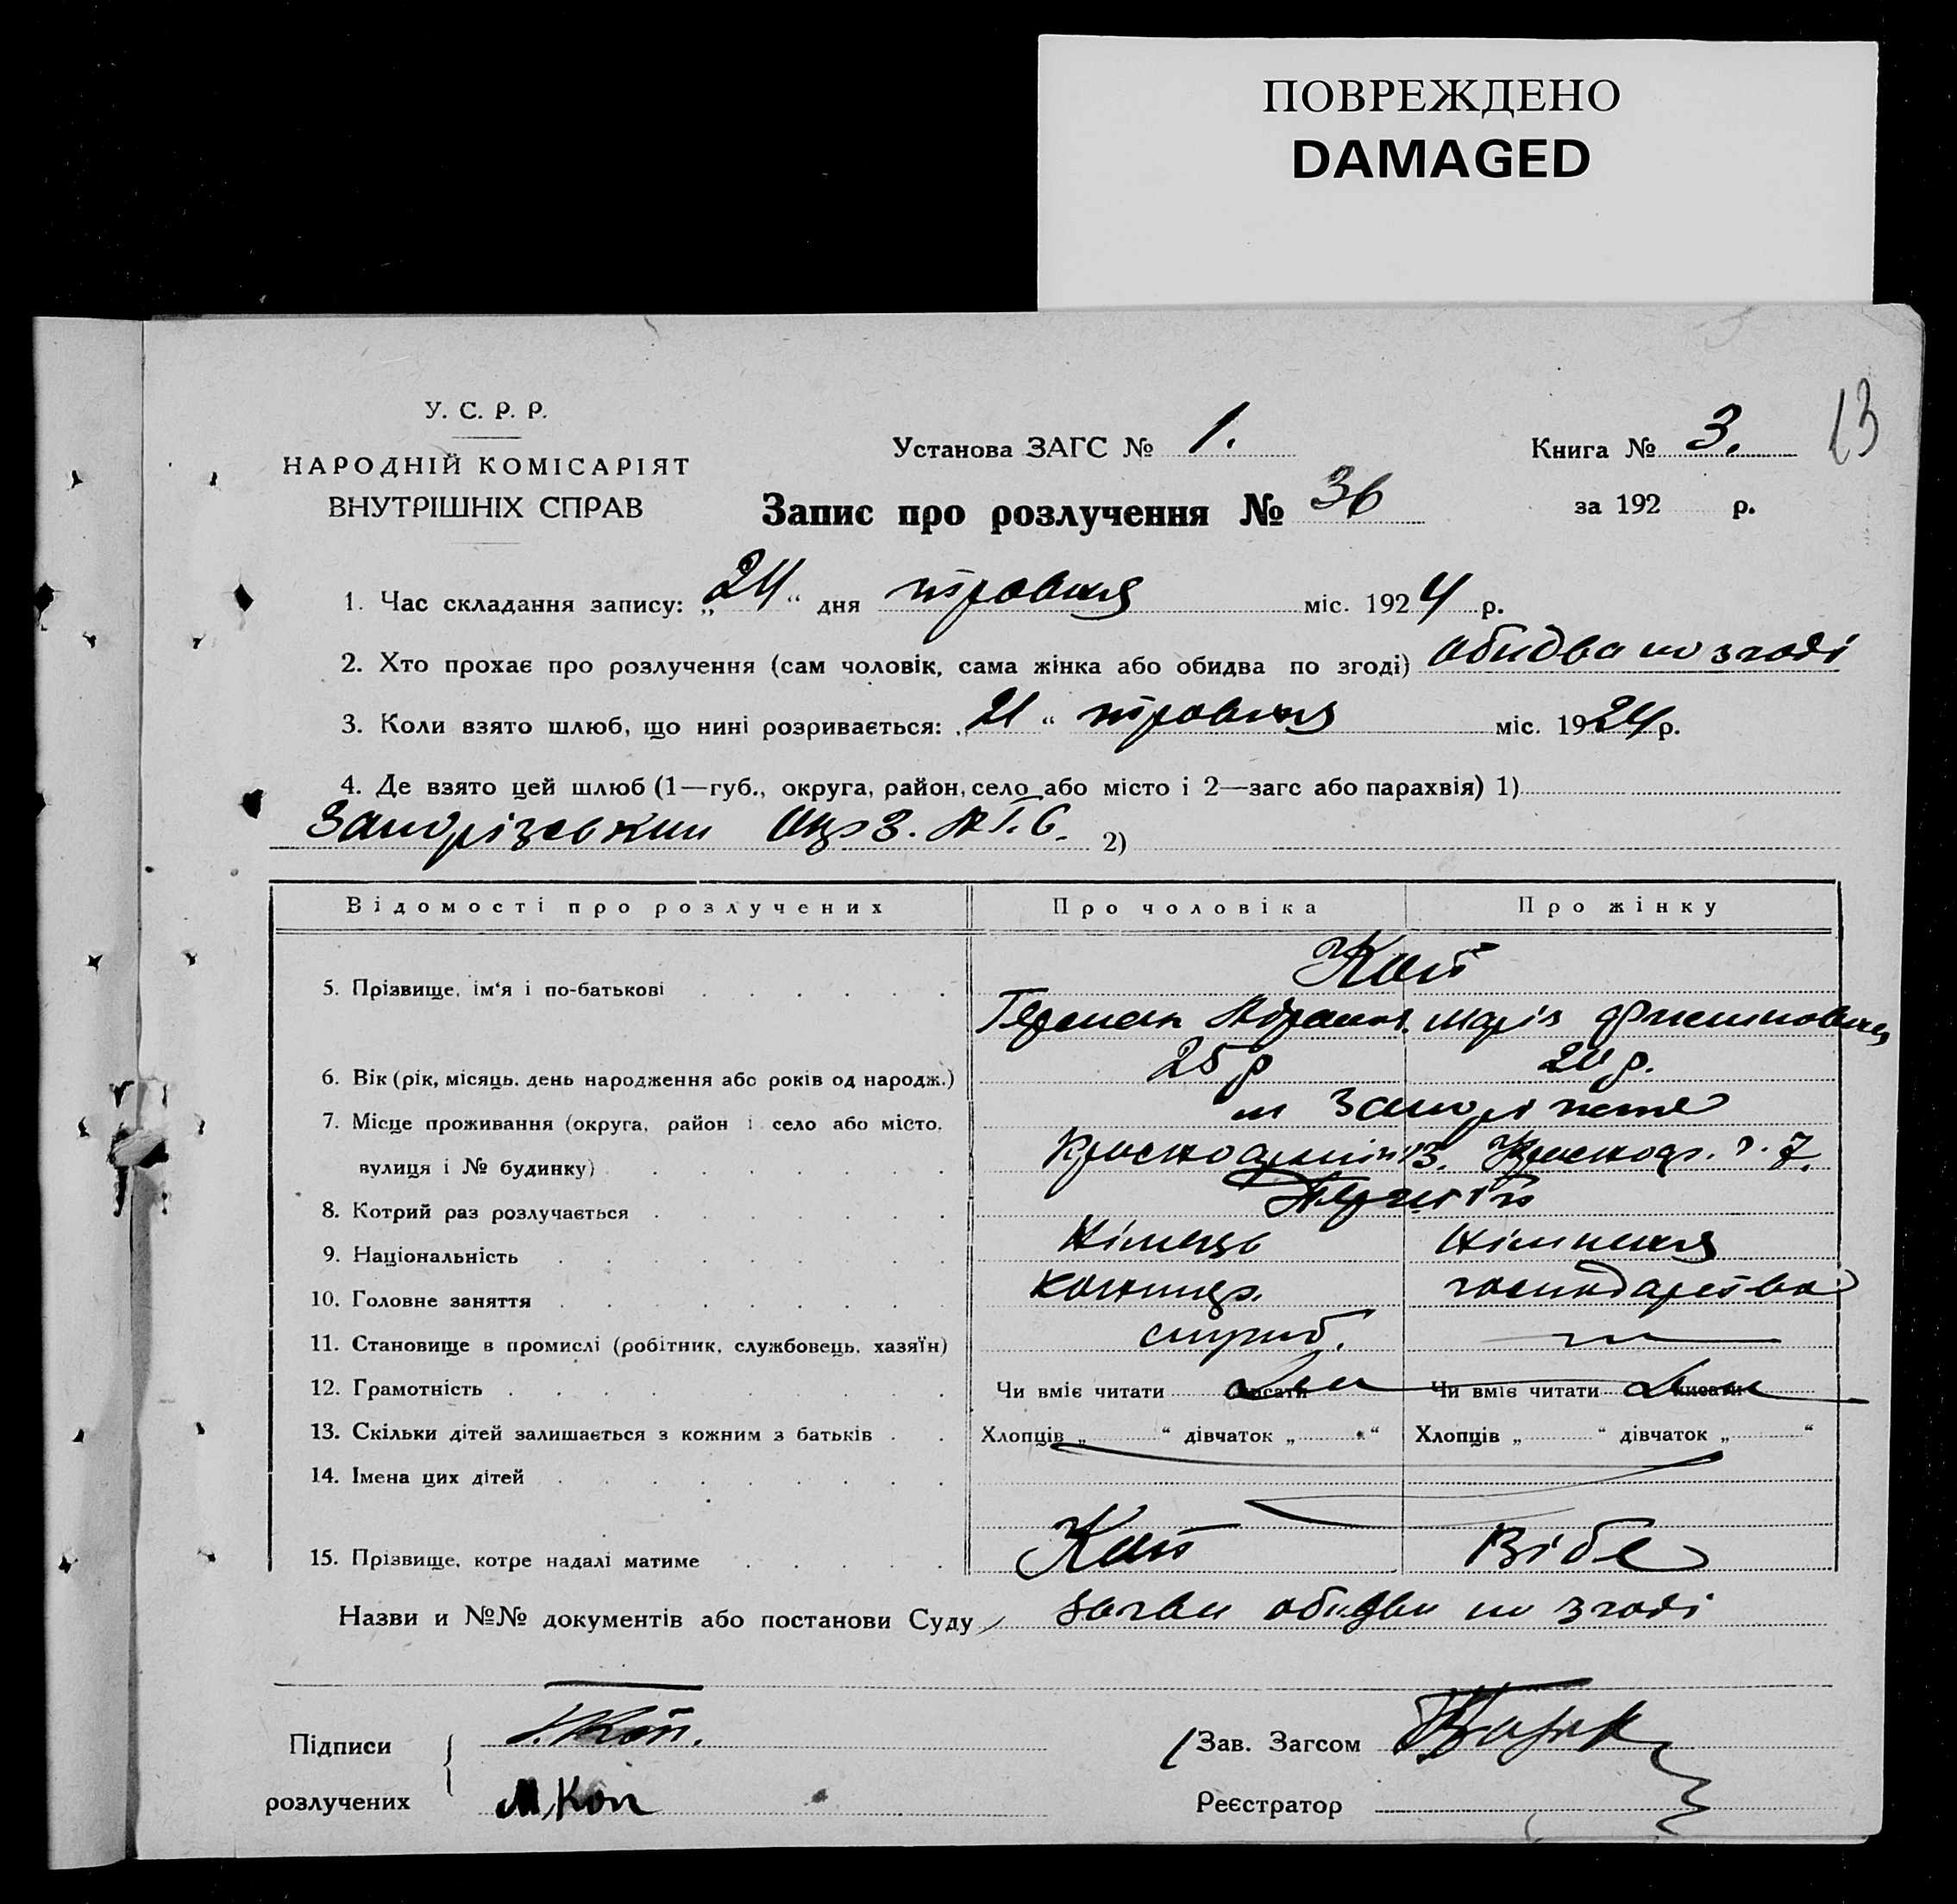 ПОВРЕЖДЕНО
DAMAGED
13
У. С. Р. Р.
НАРОДНІЙ КОМІСАРІЯТ
ВНУТРІШНІХ СПРАВ
Установа ЗАГС № 1.
Книга № 3.
Запис про розлучення № 36
за 192 р.
1. Час складання запису: „24“ дня травня міс. 1924 р.
2. Хто прохає про розлучення (сам чоловік, сама жінка або обидва по згоді) обидва по згоді
3. Коли взято шлюб, що нині розривається: „21“ травня міс. 1924 р.
4. Де взято цей шлюб (1—губ., округа, район, село або місто і 2—загс або парахвія) 1)
Запорізьким Окр З. А Г. С. 2)
Відомості про розлучених Про чоловіка Про жінку
5. Прізвище, ім‘я і по-батькові
Герман Абрамов. Марія
6. Вік (рік, місяць, день народження або років од народж.) 25 р 20 р.
7. Місце проживання (округа, район і село або місто, м Запоріжжє
вулиця і № будинку) 7.
8. Котрий раз розлучається
9. Національність Німець Німкеня
10. Головне заняття господарство
11. Становище в промислі (робітник, службовець, хазяїн)
12. Грамотність Чи вміє читати писати Чи вміє читати писати
13. Скільки дітей залишається з кожним з батьків Хлопців „ “ дівчаток „ “ Хлопців „ “ дівчаток „ “
14. Імена цих дітей
15. Прізвище, котре надалі матиме Вібе
Назви и №№ документів або постанови Суду заяви обидви по згоді
Підписи
розлучених
М. Коп
Зав. Загсом
Реєстратор